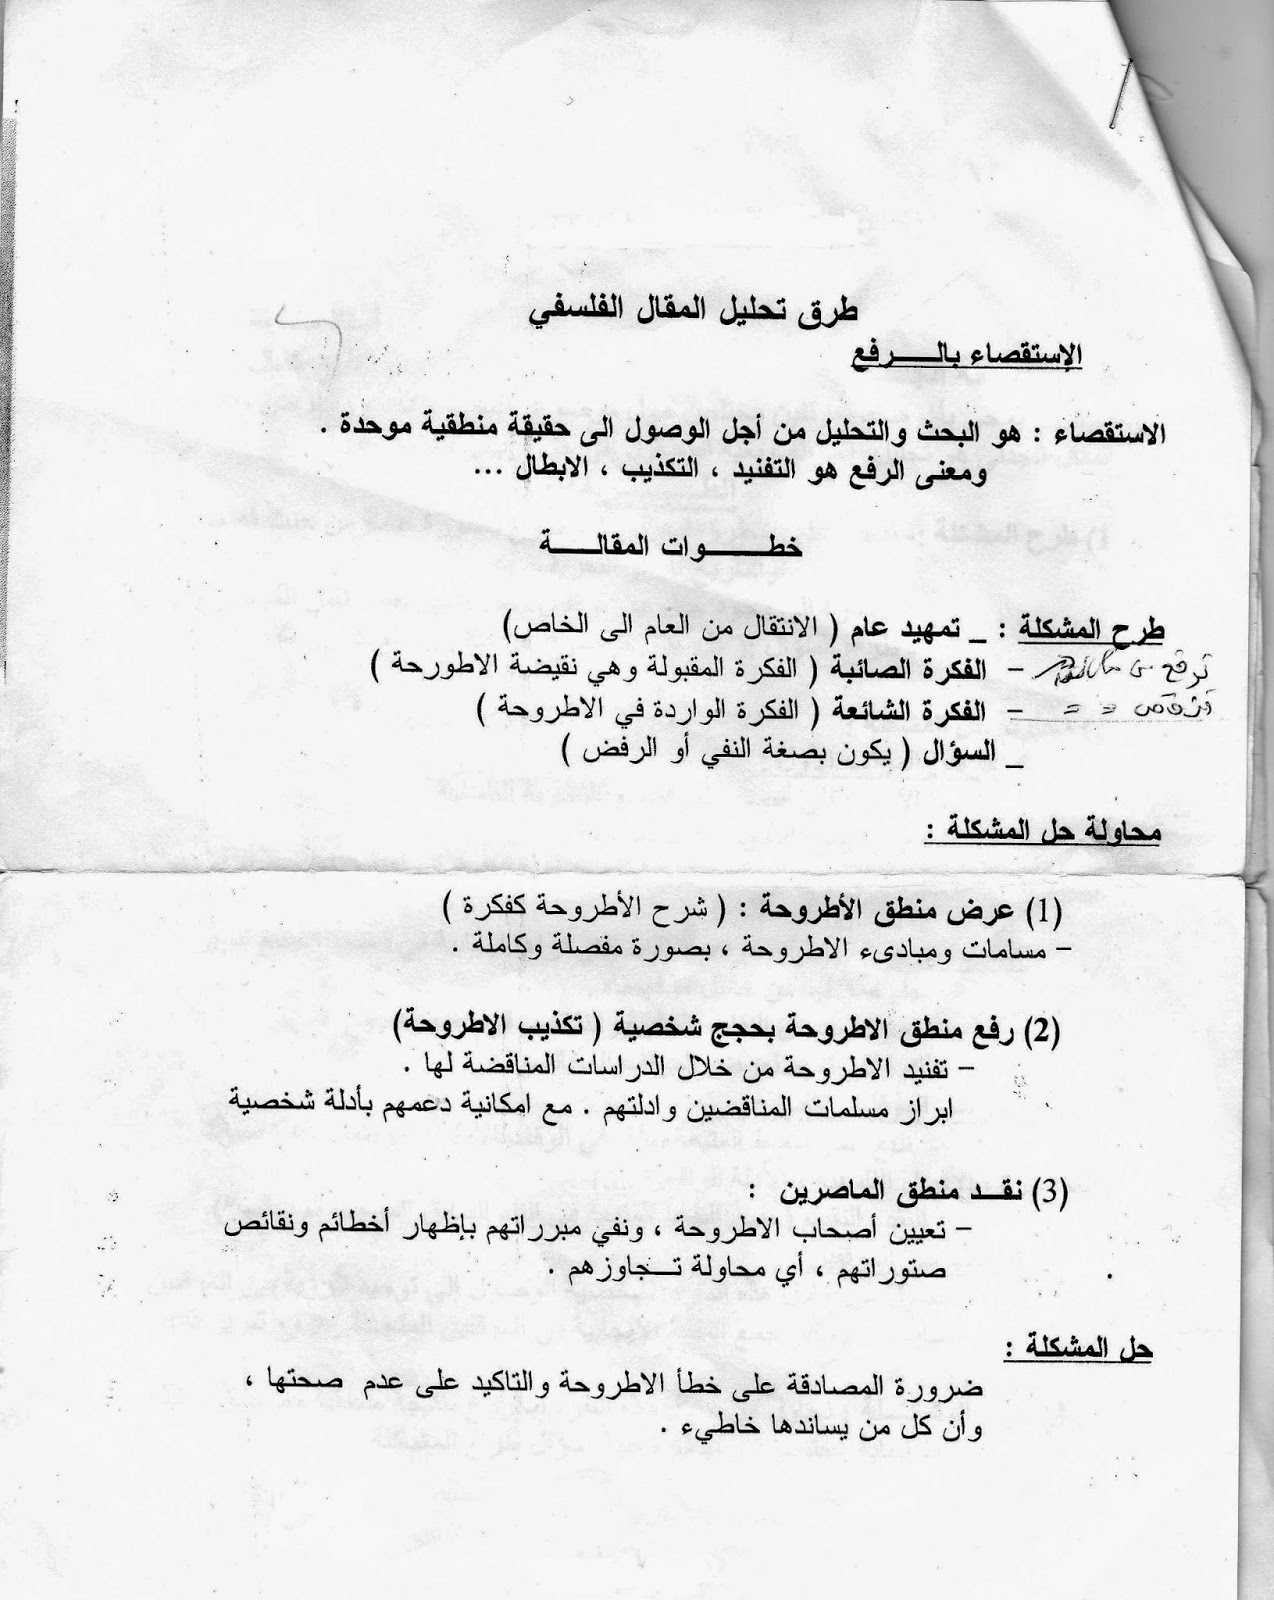 طرق تحليل المقال الفلسفي
الإستقصاء بالـــرفع
الاستقصاء : هو البحث والتحليل من أجل الوصول الى حقيقة منطقية موحدة .
ومعنى الرفع هو التفنيد ، التكذيب ، الابطال ...
خطـــــوات المقالـــــة
طرح المشكلة : _ تمهيد عام ( الانتقال من العام الى الخاص)
– الفكرة الصائبة ( الفكرة المقبولة وهي نقيضة الاطورحة ) ترفع
– الفكرة الشائعة ( الفكرة الواردة في الاطروحة ) = =
_ السؤال ( يكون بصغة النفي أو الرفض )
محاولة حل المشكلة :
(1) عرض منطق الأطروحة : ( شرح الأطروحة كفكرة )
– مسامات ومبادىء الاطروحة ، بصورة مفصلة وكاملة .
(2) رفع منطق الاطروحة بحجج شخصية ( تكذيب الاطروحة)
– تفنيد الاطروحة من خلال الدراسات المناقضة لها .
ابراز مسلمات المناقضين وادلتهم . مع امكانية دعمهم بأدلة شخصية
(3) نقــد منطق الماصرين :
– تعيين أصحاب الاطروحة ، ونفي مبرراتهم بإظهار أخطائم ونقائص
صتوراتهم ، أي محاولة تــجاوزهم .
حل المشكلة :
ضرورة المصادقة على خطأ الاطروحة والتاكيد على عدم صحتها ،
وأن كل من يساندها خاطيء .